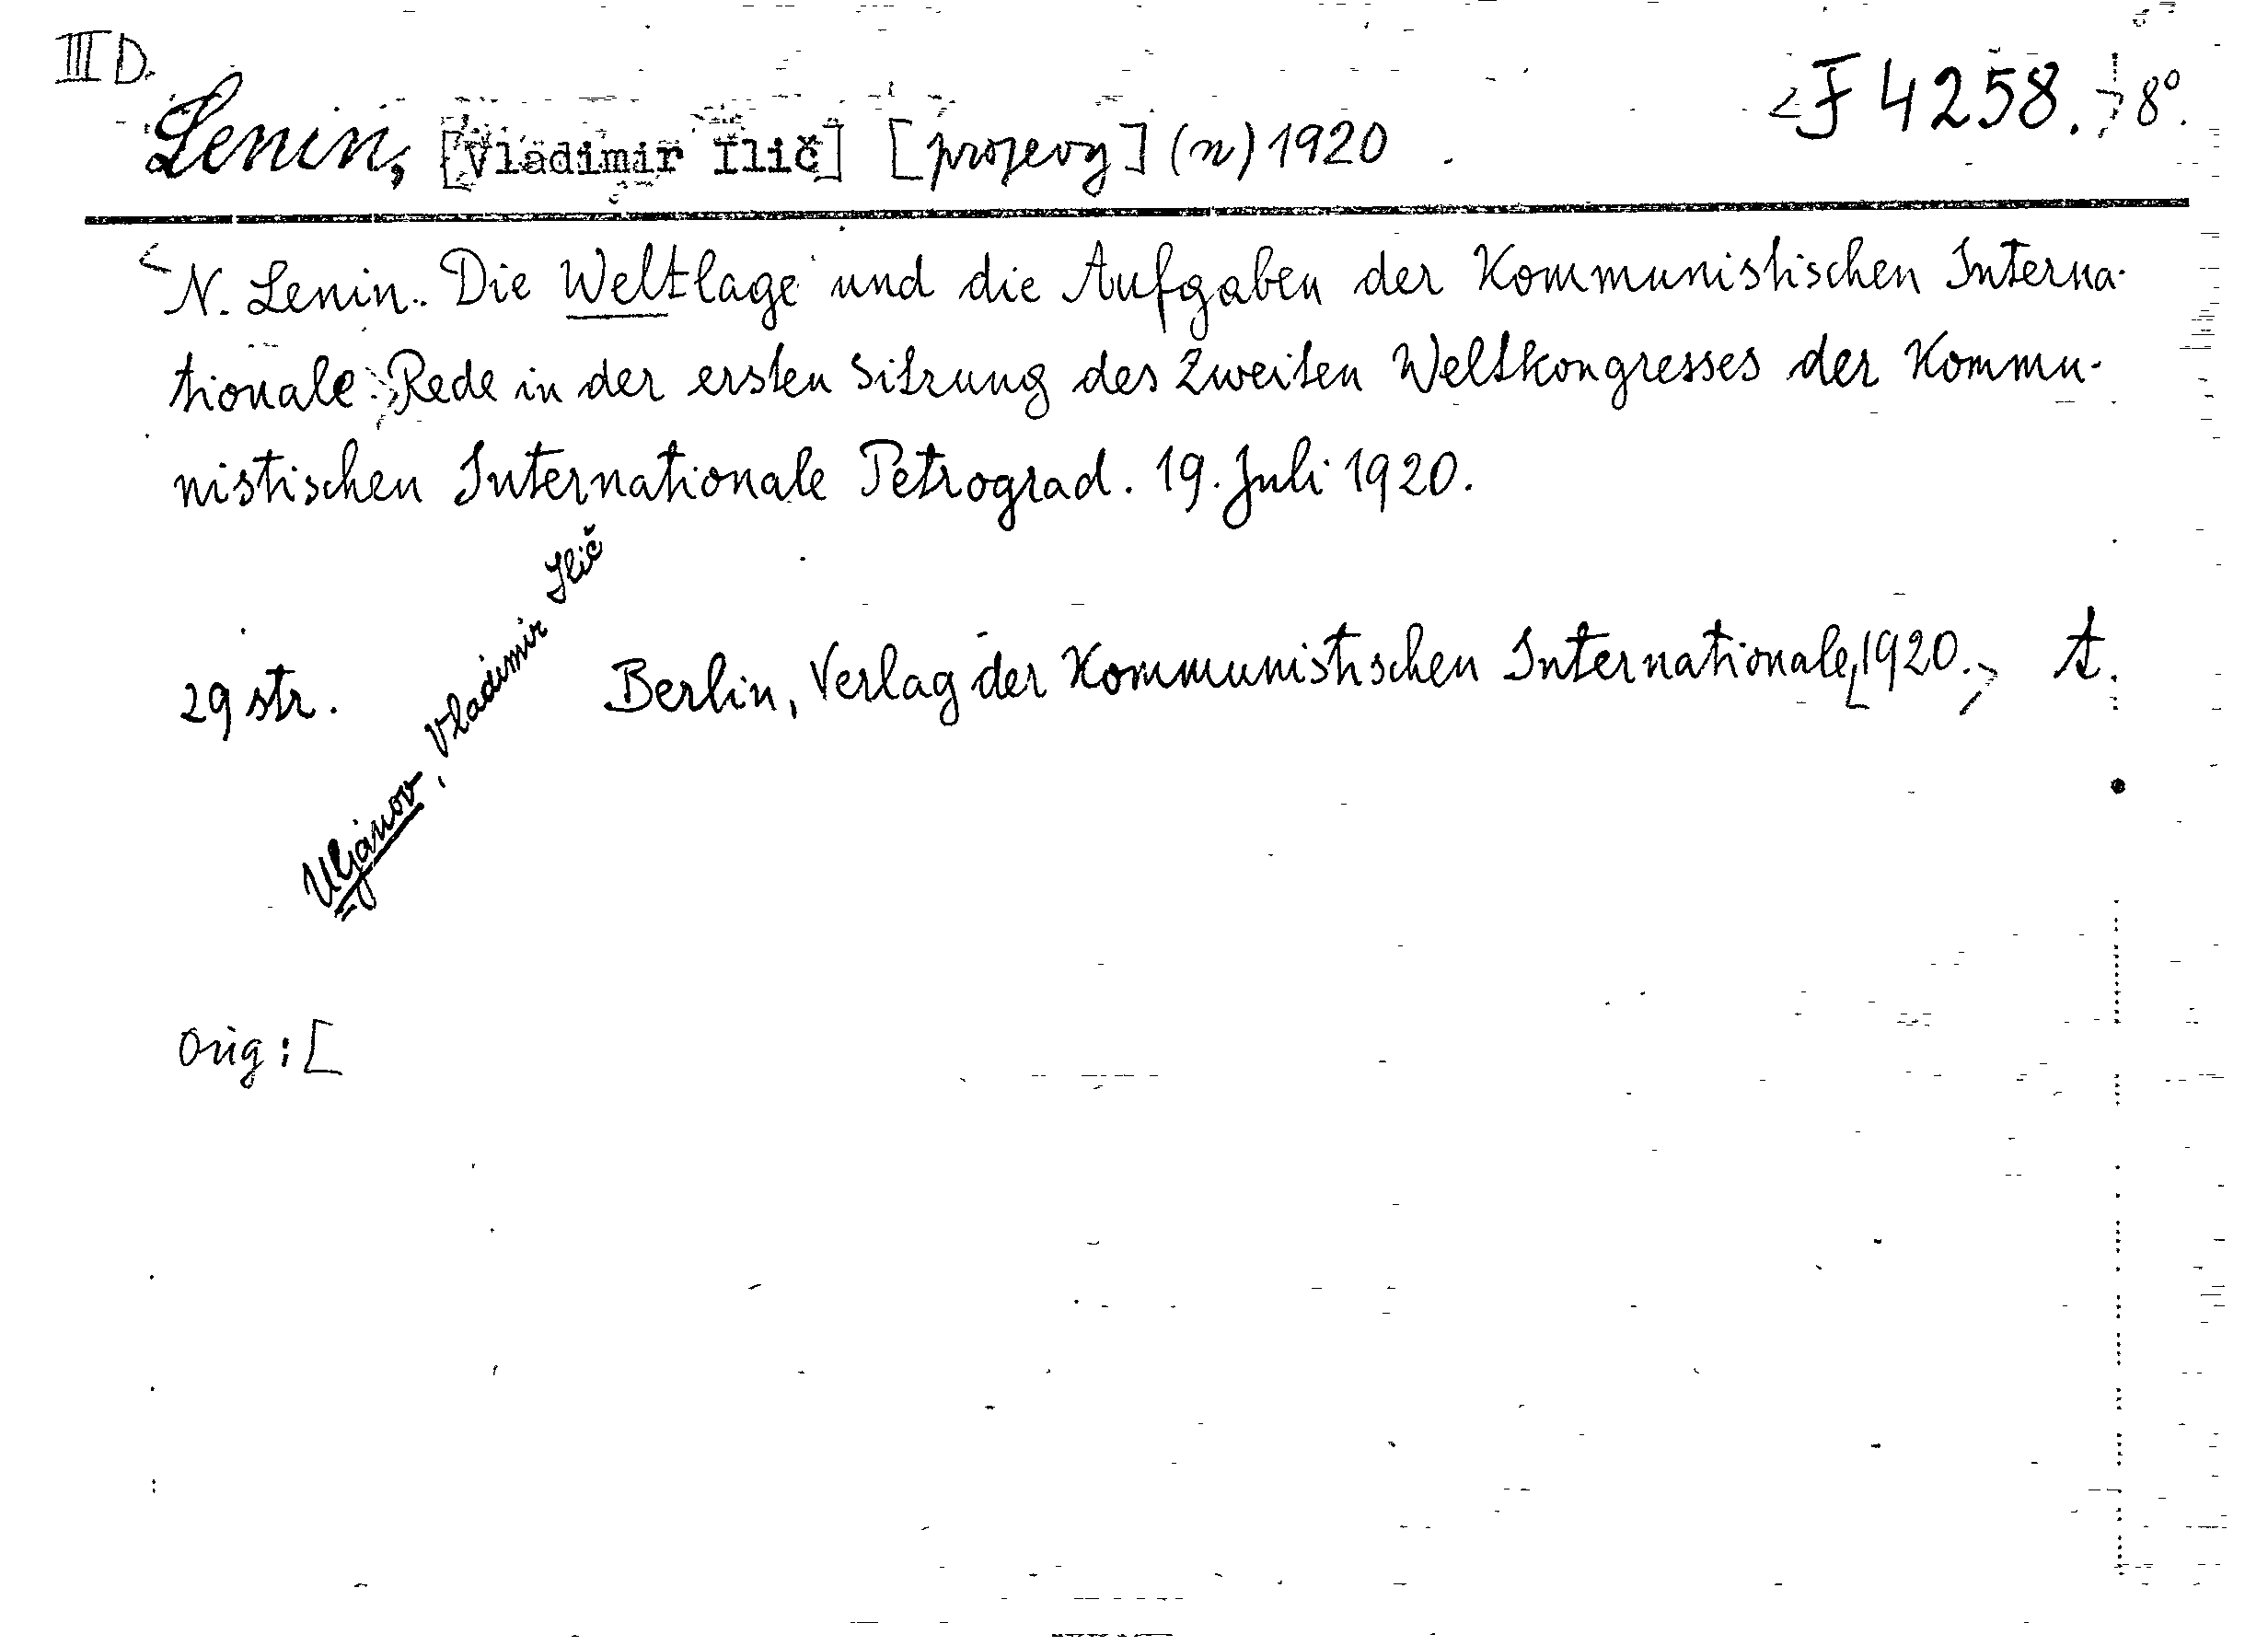 III D.
<F 4258.> 8°.
Lenin, [Vladimir Ilič] [projevy] (n) 1920
<N. Lenin. Die Weltlage und die Aufgaben der Kommunistischen Interna-
tionale.> Rede in der ersten Sitzung des Zweiten Weltkongresses der Kommu-
nistischen Internationale Petrograd. 19. Juli 1920.
29 str. Berlin, Verlag der Kommunistischen Internationale, [1920.> A.
Uljanov, Vladimir Ilič
Orig: [